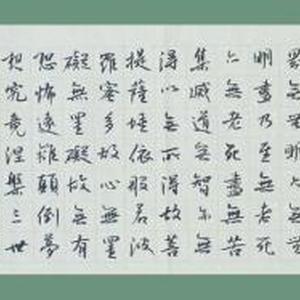 界無無明亦無無
明盡乃至無老死
亦無老死盡無苦
集滅道無智亦無
得以無所得故菩
提薩埵依般若波
羅蜜多故心無罣
礙無罣礙故無有
恐怖遠離顛倒夢
想究竟涅槃三世